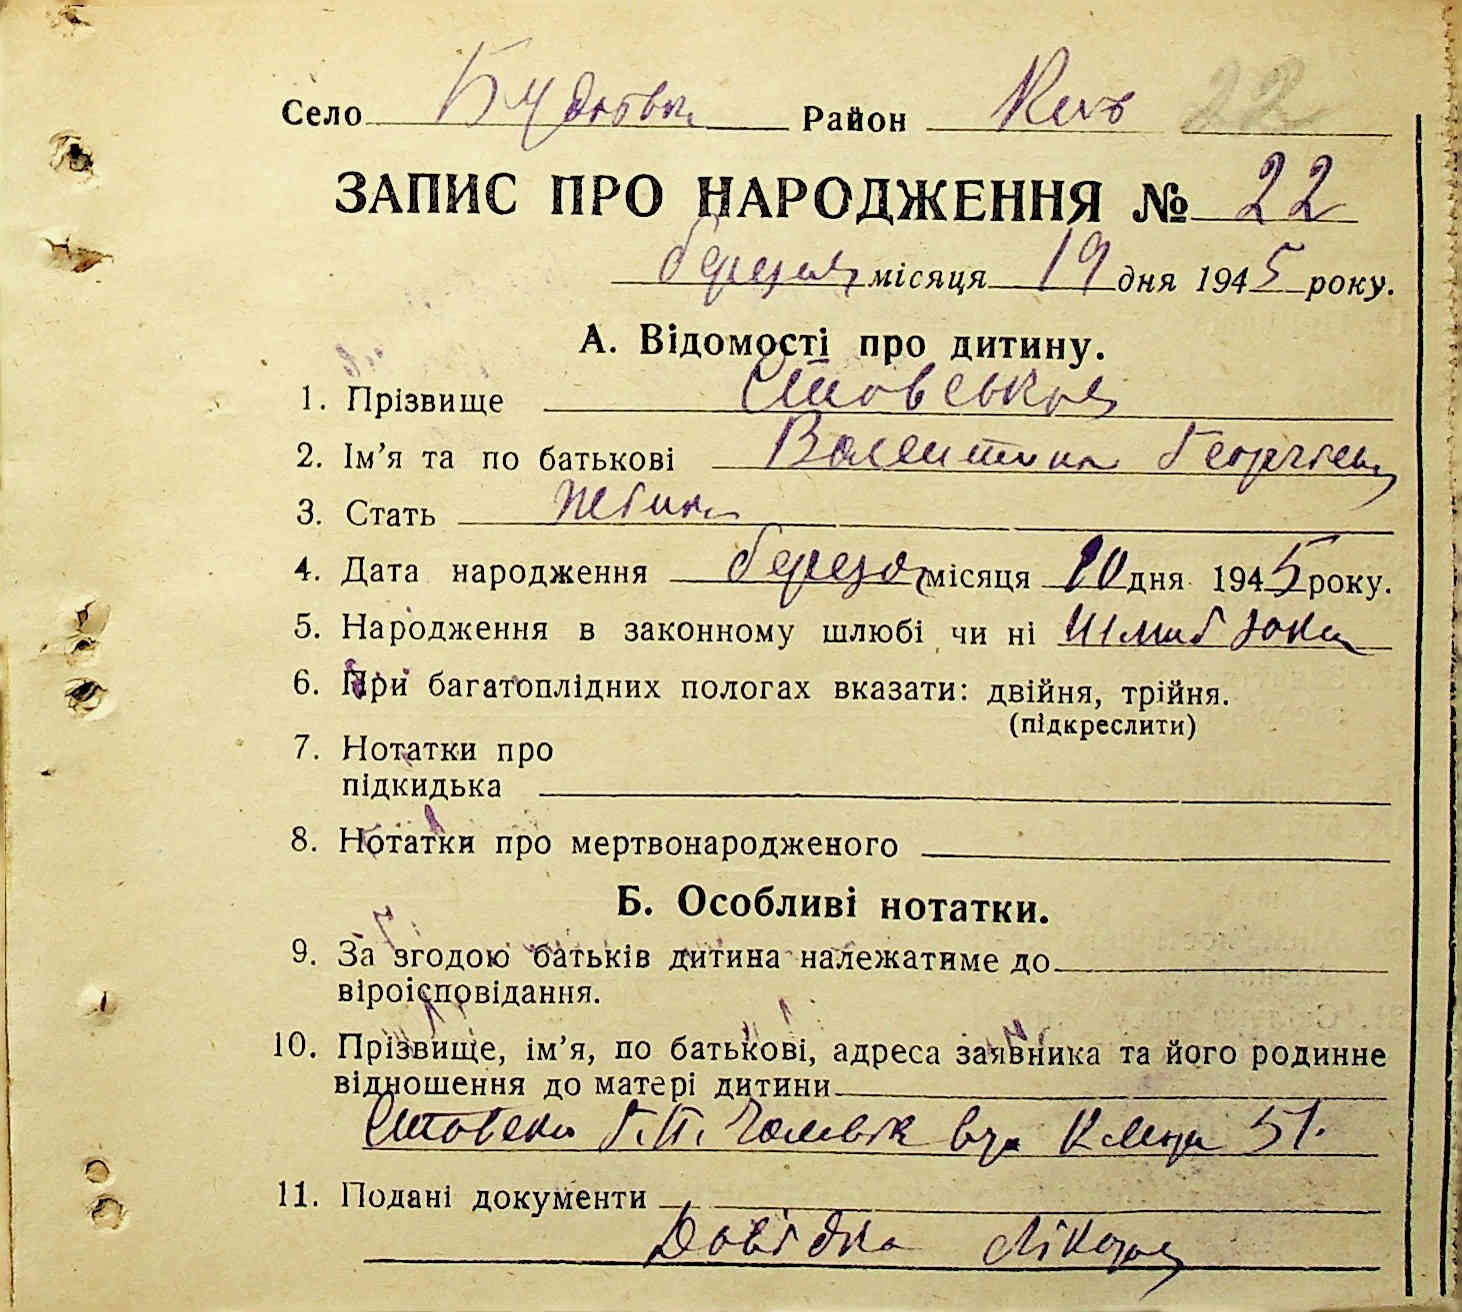 Село Будовки Район Київ 22
ЗАПИС ПРО НАРОДЖЕННЯ № 22
березня місяця 19 дня 1945 року.
А. Відомості про дитину.
1. Прізвище
2. Ім’я та по батькові Валентина Георгіевн
3. Стать Жіноч
4. Дата народження березня місяця 10 дня 1945 року.
5. Народження в законному шлюбі чи ні
6. При багатоплідних пологах вказати: двійня, трійня.
(підкреслити)
7. Нотатки про
підкидька
8. Нотатки про мертвонародженого
Б. Особливі нотатки.
9. За згодою батьків дитина належатиме до
віроісповідання.
10. Прізвище, ім’я, по батькові, адреса заявника та його родинне
відношення до матері дитини
Г.П. Чоловік вул 51.
11. Подані документи
Довідка Лікаря